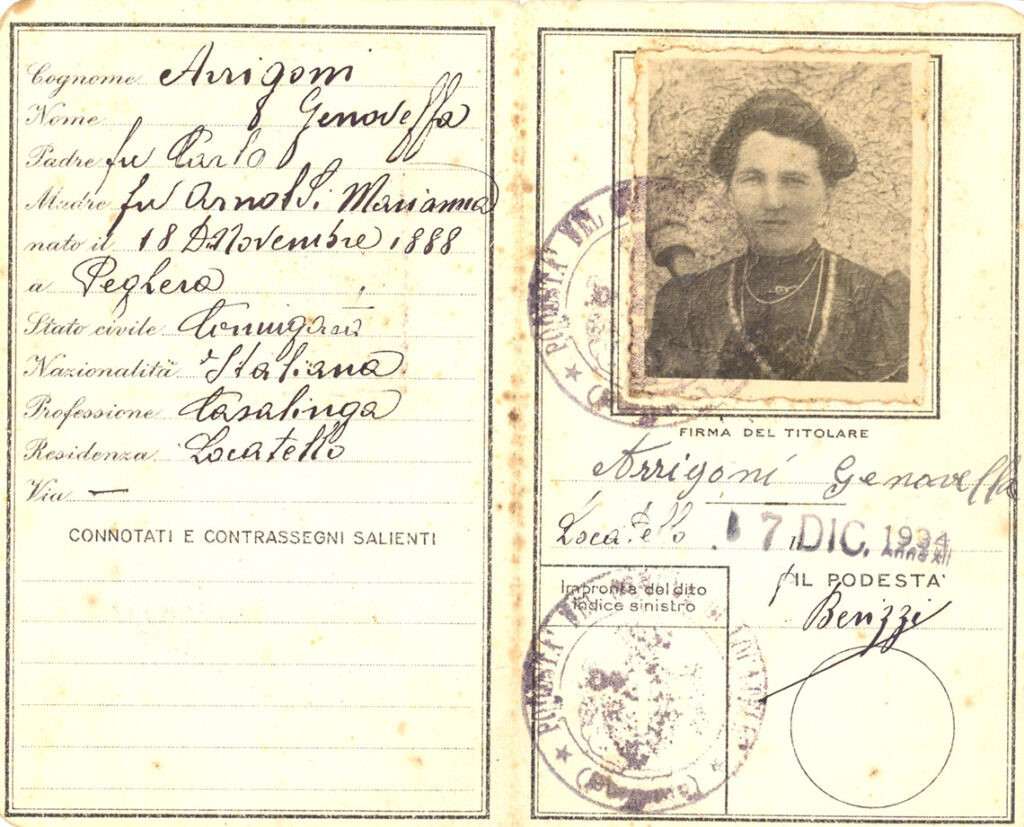 Cognome Arrigoni
Nome Genoveffa
Padre fu Carlo
Madre fu Arnoldi Marianna
nato il 18 Novembre 1888
a Peghera
Stato civile Coniugata
Nazionalità Italiana
Professione Casalinga
Residenza Locatello
Via —
CONNOTATI E CONTRASSEGNI SALIENTI
PODESTÀ DEL
FIRMA DEL TITOLARE
Arrigoni Genoveffa
Locatello 17 DIC. 1934
Anno XII
IL PODESTA'
Berizzi
Impronta del dito
indice sinistro
PODESTÀ DEL
(Bergamo)